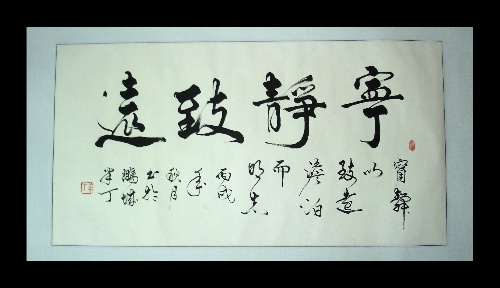 寧靜致遠
甯靜
以
致遠
澹泊
而
明志
丙戌
年
秋月
书於
鵬城